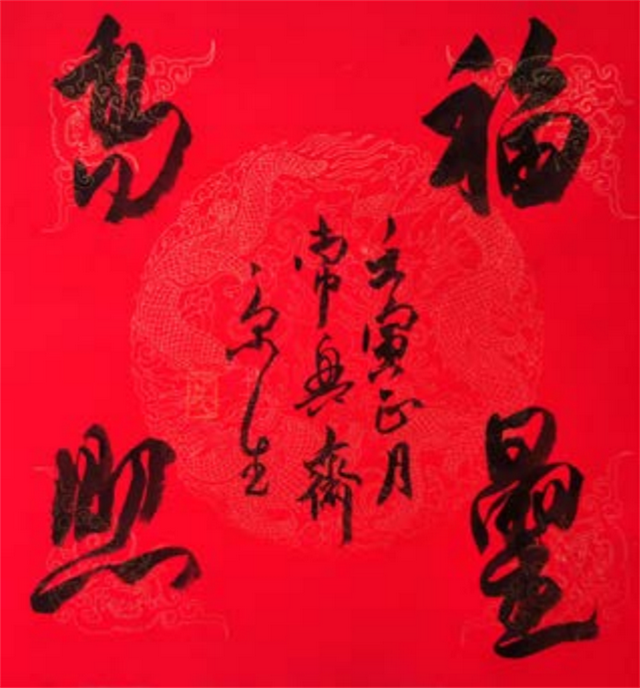 福星
高照
壬寅正月
常興齋
京生